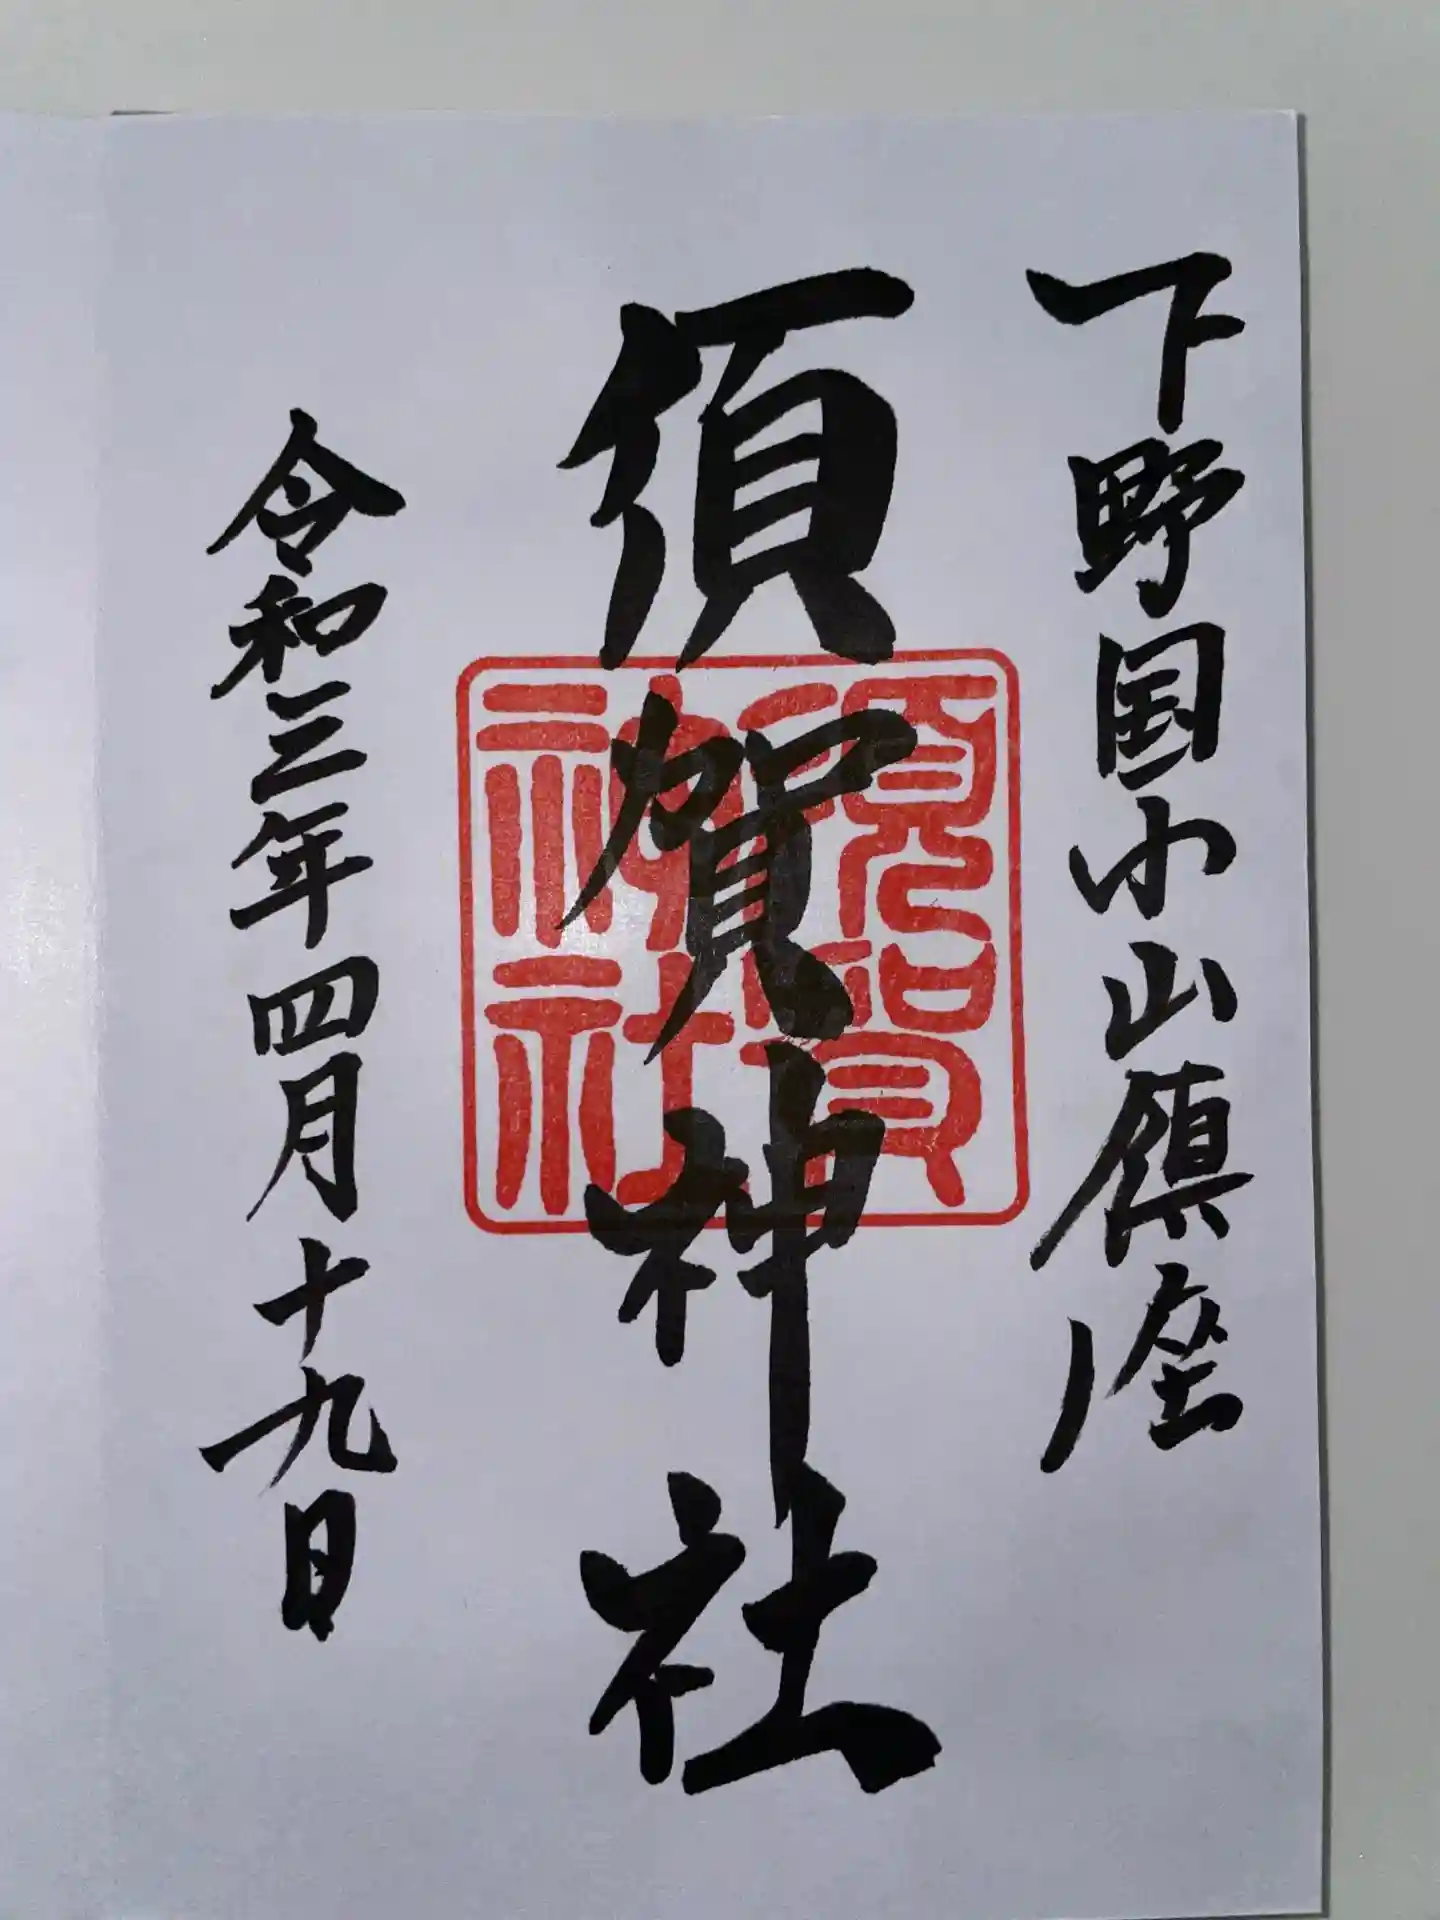 下野国小山鎮座
須賀神社
須賀神社
令和三年四月十九日